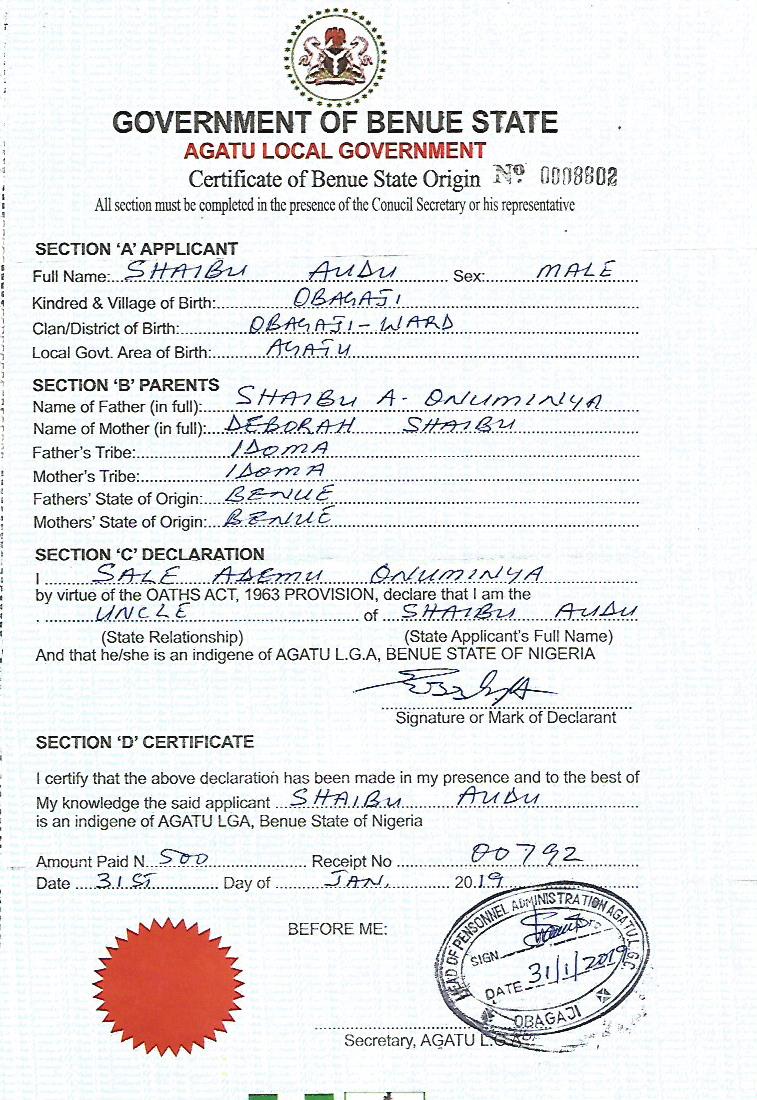 GOVERNMENT OF BENUE STATE
AGATU LOCAL GOVERNMENT
Certificate of Benue State Origin Nº 0008802
All section must be completed in the presence of the Conucil Secretary or his representative
SECTION 'A' APPLICANT
Full Name: SHAIBU AUDU Sex: MALE
Kindred & Village of Birth: OBAGAJI
Clan/District of Birth: OBAGAJI-WARD
Local Govt. Area of Birth: AGATU
SECTION 'B' PARENTS
Name of Father (in full): SHAIBU A. ONUMINYA
Name of Mother (in full): DEBORAH SHAIBU
Father's Tribe: IDOMA
Mother's Tribe: IDOMA
Fathers' State of Origin: BENUE
Mothers' State of Origin: BENUE
SECTION 'C' DECLARATION
I SALE ADEMU ONUMINYA
by virtue of the OATHS ACT, 1963 PROVISION, declare that I am the
UNCLE of SHAIBU AUDU
(State Relationship) (State Applicant's Full Name)
And that he/she is an indigene of AGATU L.G.A, BENUE STATE OF NIGERIA
Signature or Mark of Declarant
SECTION 'D' CERTIFICATE
I certify that the above declaration has been made in my presence and to the best of
My knowledge the said applicant SHAIBU AUDU
is an indigene of AGATU LGA, Benue State of Nigeria
Amount Paid N 500 Receipt No 00792
Date 31ST Day of JAN. 2019
BEFORE ME:
HEAD OF PENSONNEL ADMINISTRATION AGATU L.G.C.
SIGN
DATE 31/1/2019
OBAGAJI
Secretary, AGATU L.G.A